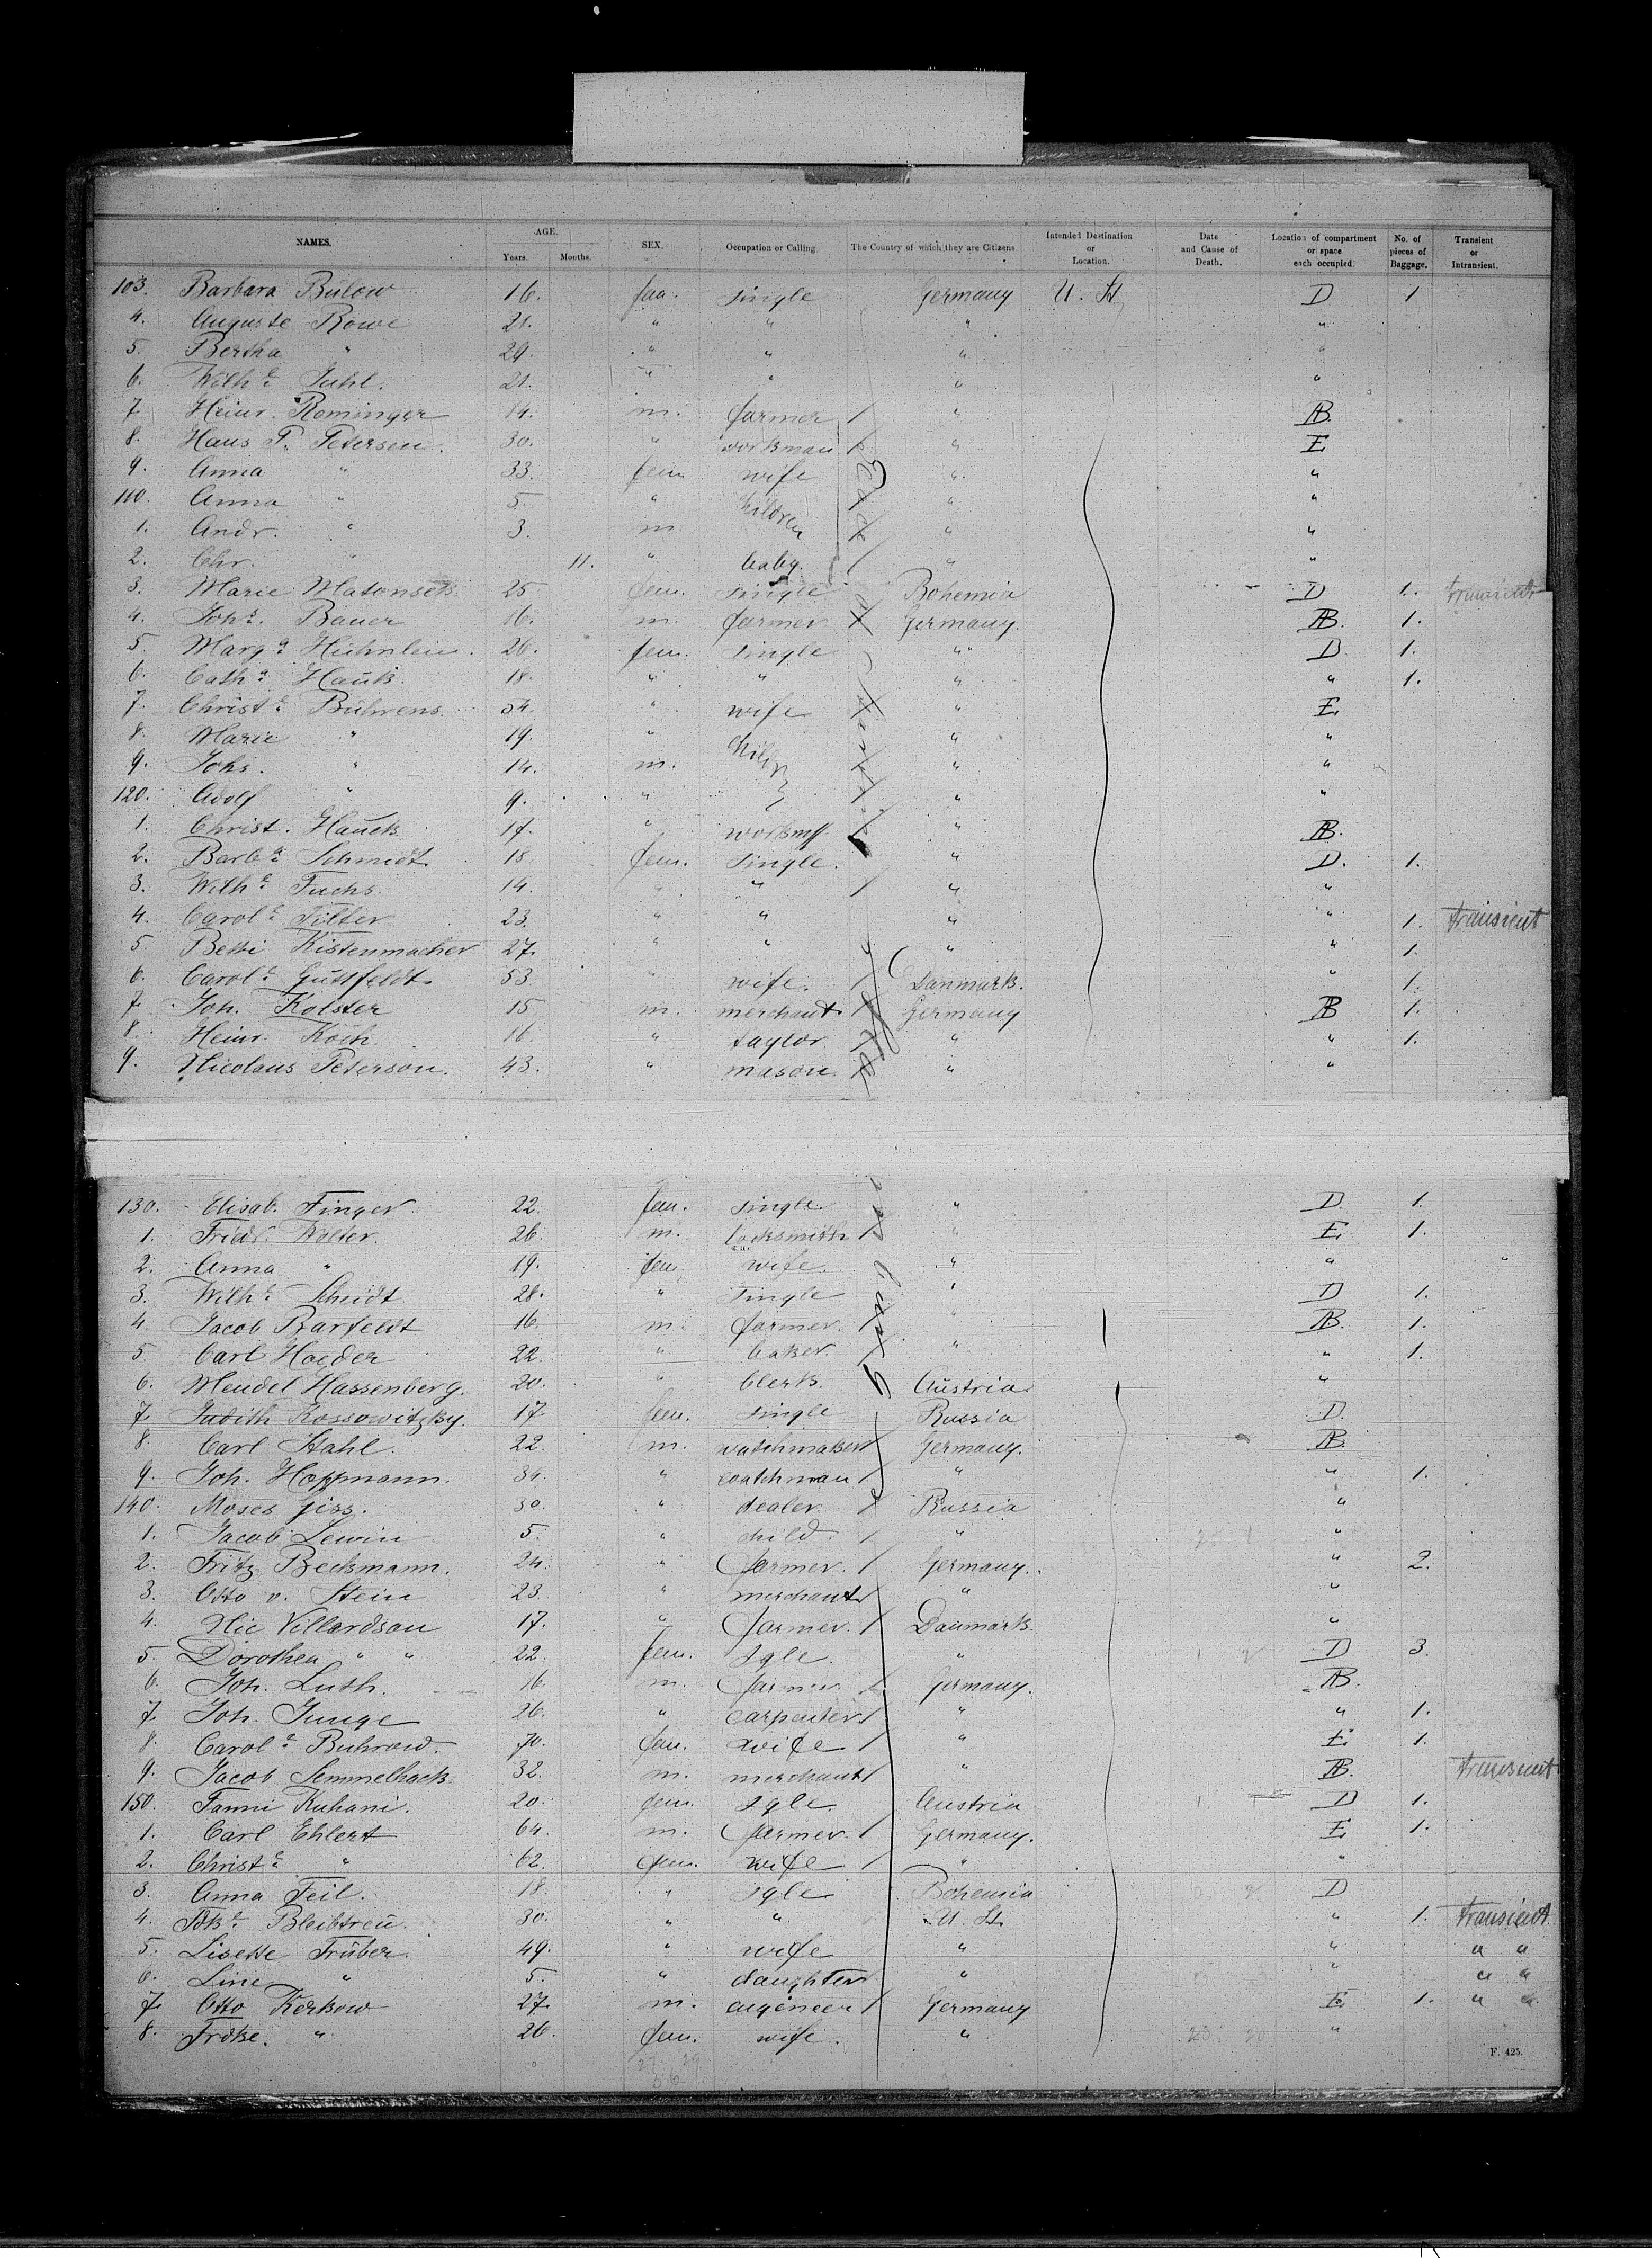 NAMES. AGE. Years. Months. SEX. Occupation or Calling. The Country of which they are Citizens. Intended Destination or Location. Date and Cause of Death. Location of compartment or space each occupied. No. of pieces of Baggage. Transient or Intransient.
103. Barbara Bülow 16. fem. single Germany U. St. D 1
4. Auguste Rowe 21. " " " "
5. Bertha " 29. " " " "
6. Wilhe. Juhl. 21. " " " "
7. Heinr. Rominger 14. m. farmer / " AB.
8. Hans P. Petersen. 30. " workman / " E
9. Anna " 33. fem wife " "
110. Anna " 5. " children " "
1. Andr. " 3. m. " "
2. Chr. " 11. " baby. / " "
3. Marie Matonsek 25 fem. single Bohemia D 1. transient
4. Johs. Bauer 16. m. farmer Germany. AB. 1.
5. Marga. Hühnlein. 26. fem. single " D. 1.
6. Catha. Hauk. 18. " " " " 1.
7. Christe. Bührens. 54. " wife " E.
8. Marie " 19. " " "
9. Johs. " 14. m. " "
120. Adolf " 9. " " "
1. Christ. Hauck 17. " " AB.
2. Barba. Schmidt 18. fem. single. " D. 1.
3. Wilhe. Fuchs. 14. " " / " "
4. Carole. Filter 23. " " " " 1. transient
5. Betti Kistenmacher 27. " " " " 1.
6. Carole. Guttfeldt. 53. " wife. / Danmark. " 1.
7. Joh. Kolster 15 m. merchant / Germany AB 1.
8. Heinr. Koch. 16. " taylor. " " 1.
9. Nicolaus Peterson. 43. " mason. " "
130. Elisab. Finger. 22. fem. single. " D. 1.
1. Friedr. Wolter. 26. m. locksmith / " E. 1.
2. Anna " 19. fem. wife. " "
3. Wilhe. Scheidt 28. " single " D 1.
4. Jacob Barfeldt 16. m. farmer. / " AB. 1.
5. Carl Hoeder 22. " baker. " " 1.
6. Mendel Hassenberg. 20. " clerk. Austria "
7. Judith Kossowitzky. 17 fem. single Russia D.
8. Carl Stahl. 22. m. watchmaker / Germany. AB
9. Joh. Hoppmann. 34. " coatchman / " " 1.
140. Moses Jiss. 30. " dealer. / Russia "
1. Jacob Lewin 5. " child. / " "
2. Fritz Beckmann. 24. " farmer. / Germany. " 2.
3. Otto v. Stein 23. " merchant " "
4. Nic Villardsan 17. " farmer. / Danmark. "
5. Dorothea " " 22. fem. sgle. " D 3.
6. Joh. Luth. 16. m. farmer / Germany. AB.
7. Joh. Junge 26. " carpenter / " " 1.
8. Carole. Buhrow. 70. fem. wife / " E. 1.
9. Jacob Semmelhack 32. m. merchant / " AB. transient
150. Fanni Kuhani. 20. fem. sgle. Austria D 1.
1. Carl Ehlert 64. m. farmer. / Germany. E. 1.
2. Christe. " 62. fem. wife / " "
3. Anna Feil. 18. " sgle Bohemia D
4. Bleibtreu. 30. " " U. St. " 1. transient
5. Lisette Trüber. 49. " wife " " " "
6. Line " 5. " daughter " " " "
7. Otto Kerkow 27. m. engineer / Germany E. 1. " "
8. Frdke. " 26. fem. wife. " "
F. 425.